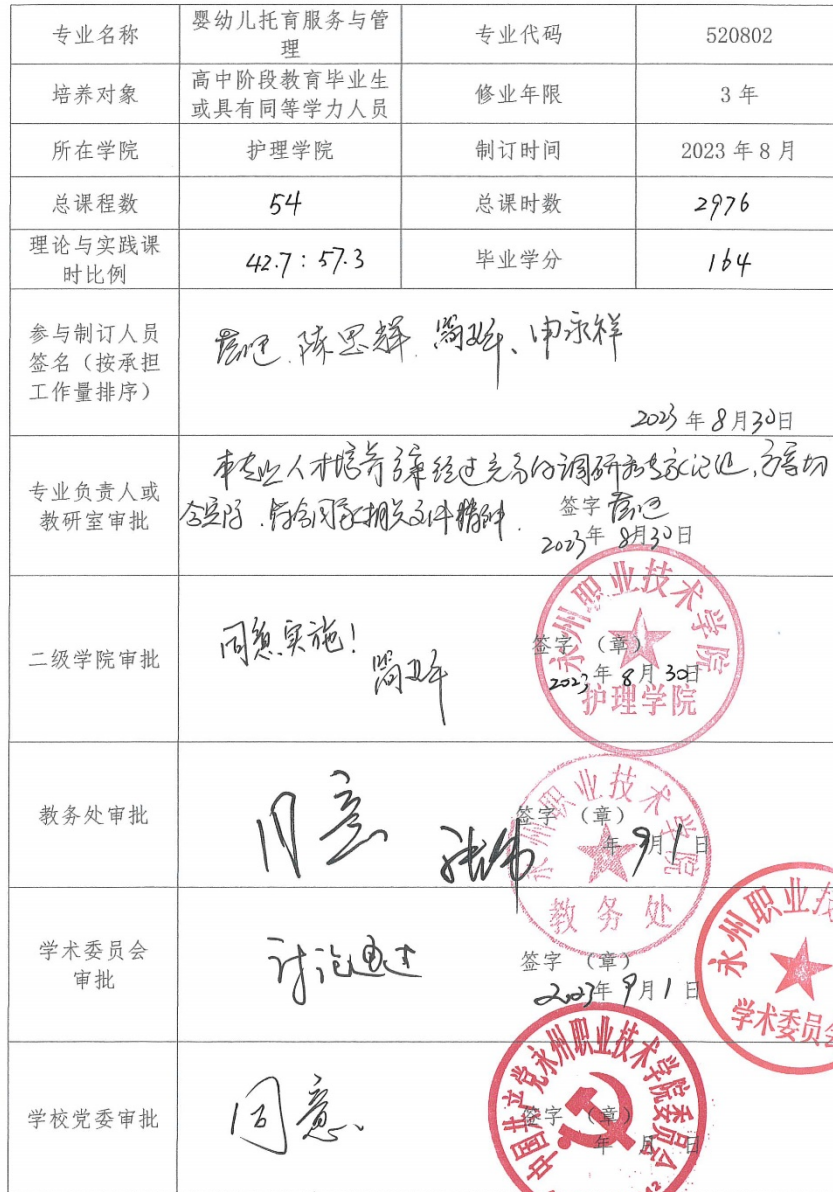 专业名称 婴幼儿托育服务与管 专业代码 520802
理
培养对象 高中阶段教育毕业生 修业年限 3 年
或具有同等学力人员
所在学院 护理学院 制订时间 2023 年 8 月
总课程数 54 总课时数 2976
理论与实践课 42.7:57.3 毕业学分 164
时比例
参与制订人员 陈思辉、申永祥
签名(按承担
工作量排序)
2023 年 8 月 30 日
专业负责人或 本专业人才培养方案经过充分的调研和专家论证,方案切
教研室审批 合实际,符合国家相关文件精神. 签字
2023 年 8 月 30 日
二级学院审批 同意实施!
签字 (章)
2023 年 8 月 30 日
永州职业技术学院
护理学院
教务处审批 同意 张伟 签字 (章)
年 9 月 1 日
永州职业技术学院
教务处
学术委员会 讨论通过 签字 (章)
审批 2023 年 9 月 1 日
永州职业技
学术委员会
学校党委审批 同意、 签字 (章)
年 月 日
中国共产党永州职业技术学院委员会